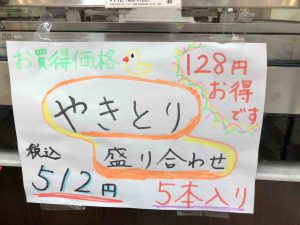 お買得価格
128円
お得
です
やきとり
盛り合わせ
税込
512円
5本入り